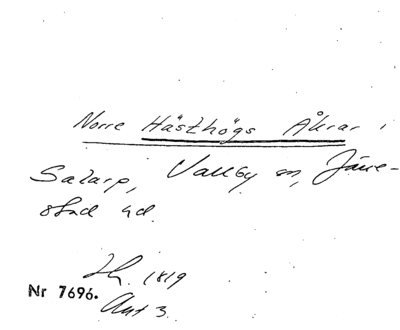 Norre Hästhögs Åkrar i
Salarp, Vallby sn, Järre-
stad hd.
Lh. 1819
Nr 7696.
Akt 3.